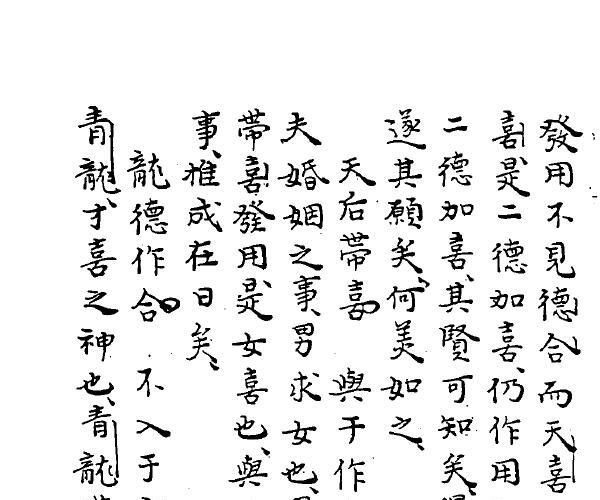 發用不見德合而天喜
喜是二德加喜仍作用
二德加喜其賢可知矣
遂其願矣何美如之
天后帶喜 與于作
夫婚姻之事男求女也
帶喜發用是女喜也與
事推成在日矣
龍德作合 不入于
青龍才喜之神也青龍